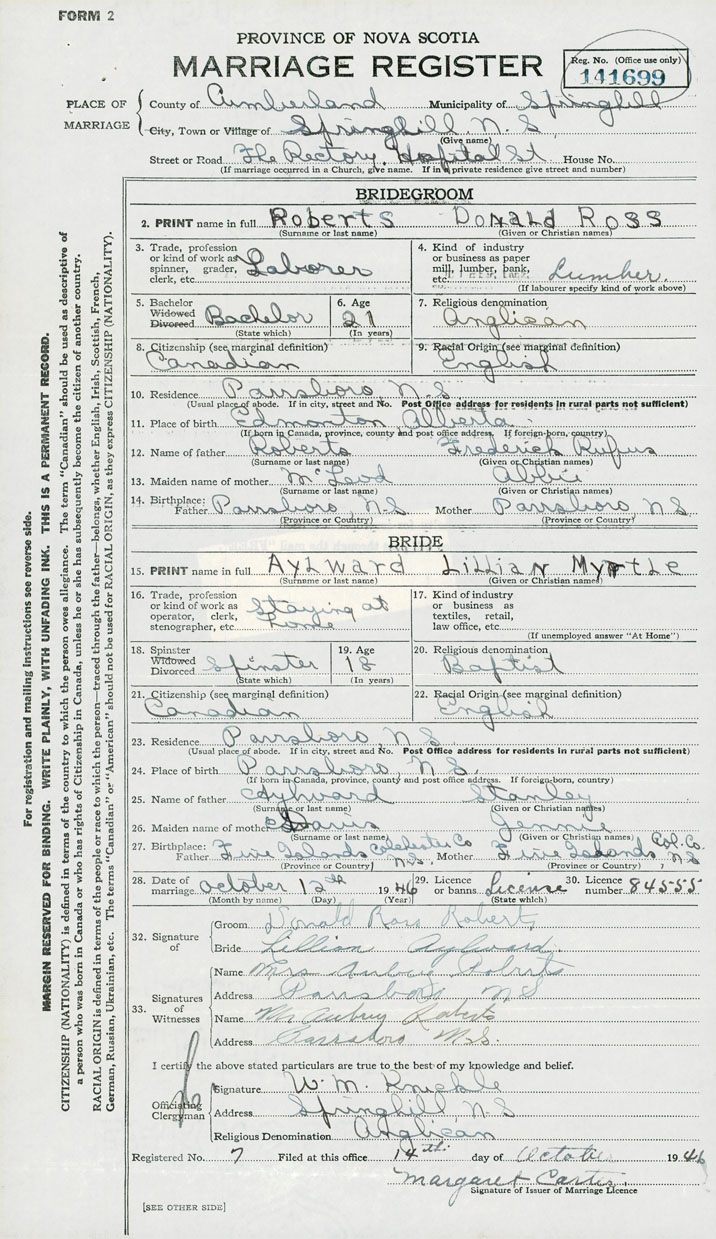 FORM 2
PROVINCE OF NOVA SCOTIA
MARRIAGE REGISTER
Reg. No. (Office use only)
141699
PLACE OF MARRIAGE
County of Cumberland Municipality of Springhill
City, Town or Village of Springhill, N.S.
(Give name)
Street or Road The Rectory, Hospital St House No.
(If marriage occurred in a Church, give name. If in a private residence give street and number)
BRIDEGROOM
2. PRINT name in full Roberts Donald Ross
(Surname or last name) (Given or Christian names)
3. Trade, profession or kind of work as spinner, grader, clerk, etc. Laborer
4. Kind of industry or business as paper mill, lumber, bank, etc. Lumber.
(If labourer specify kind of work above)
5. Bachelor Widowed Divorced Bachelor
(State which)
6. Age 21
(In years)
7. Religious denomination
Anglican
8. Citizenship (see marginal definition)
Canadian
9. Racial Origin (see marginal definition)
English
10. Residence Parrsboro N.S.
(Usual place of abode. If in city, street and No. Post Office address for residents in rural parts not sufficient)
11. Place of birth Edmonton Alberta
(If born in Canada, province, county and post office address. If foreign-born, country)
12. Name of father Roberts Frederick Rufus
(Surname or last name) (Given or Christian names)
13. Maiden name of mother McLeod Abbie
(Surname or last name) (Given or Christian names)
14. Birthplace: Father Parrsboro, N.S. Mother Parrsboro N.S.
(Province or Country) (Province or Country)
BRIDE
15. PRINT name in full Aylward Lillian Myrtle
(Surname or last name) (Given or Christian names)
16. Trade, profession or kind of work as operator, clerk, stenographer, etc. Staying at home
17. Kind of industry or business as textiles, retail, law office, etc.
(If unemployed answer "At Home")
18. Spinster Widowed Divorced Spinster
(State which)
19. Age 18
(In years)
20. Religious denomination
Baptist
21. Citizenship (see marginal definition)
Canadian
22. Racial Origin (see marginal definition)
English
23. Residence Parrsboro, N.S.
(Usual place of abode. If in city, street and No. Post Office address for residents in rural parts not sufficient)
24. Place of birth Parrsboro, N.S.
(If born in Canada, province, county and post office address. If foreign-born, country)
25. Name of father Aylward Stanley
(Surname or last name) (Given or Christian names)
26. Maiden name of mother Davis Jennie
(Surname or last name) (Given or Christian names)
27. Birthplace: Father Five Islands Colchester Co N.S. Mother Five Islands Col. Co. N.S
(Province or Country) (Province or Country)
28. Date of marriage October 12th 1946 29. Licence or banns License 30. Licence number 84555
(Month by name) (Day) (Year) (State which)
32. Signature of
Groom Donald Ross Roberts
Bride Lillian Aylward.
33. Signatures of Witnesses
Name Mrs Aubrey Roberts
Address Parrsboro N S
Name Mr Aubrey Roberts
Address Parrsboro N.S.
I certify the above stated particulars are true to the best of my knowledge and belief.
Officiating Clergyman
Signature W. M. Knickle
Address Springhill, N-S
Religious Denomination Anglican
Registered No. 7 Filed at this office 14th day of October 1946
Margaret Curtis
Signature of Issuer of Marriage Licence
[SEE OTHER SIDE]
For registration and mailing instructions see reverse side.
MARGIN RESERVED FOR BINDING. WRITE PLAINLY, WITH UNFADING INK. THIS IS A PERMANENT RECORD.
CITIZENSHIP (NATIONALITY) is defined in terms of the country to which the person owes allegiance. The term "Canadian" should be used as descriptive of
a person who was born in Canada or who has rights of Citizenship in Canada, unless he or she has subsequently become the citizen of another country.
RACIAL ORIGIN is defined in terms of the people or race to which the person—traced through the father—belongs, whether English, Irish, Scottish, French,
German, Russian, Ukrainian, etc. The terms "Canadian" or "American" should not be used for RACIAL ORIGIN, as they express CITIZENSHIP (NATIONALITY).